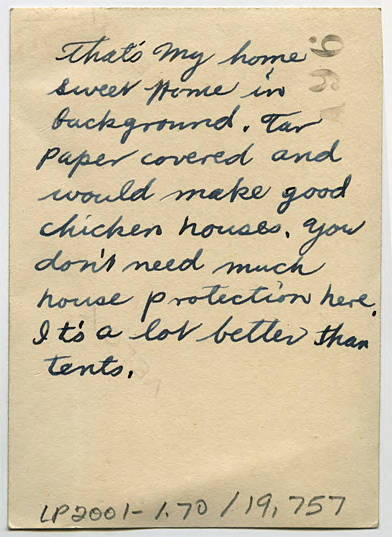 That's my home
sweet Home in
background. Tar
paper covered and
would make good
chicken houses. You
don't need much
house protection here.
It's a lot better than
tents.
LP2001-1.70/19,757